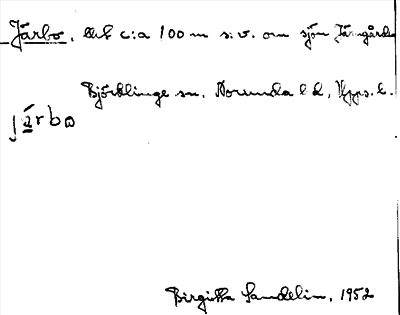 Järbo, c:a 100 m s:v. om sjön Järngården
Björklinge sn. Norunda hd, Upps. l.
järbo
Birgitta Sandelin, 1952